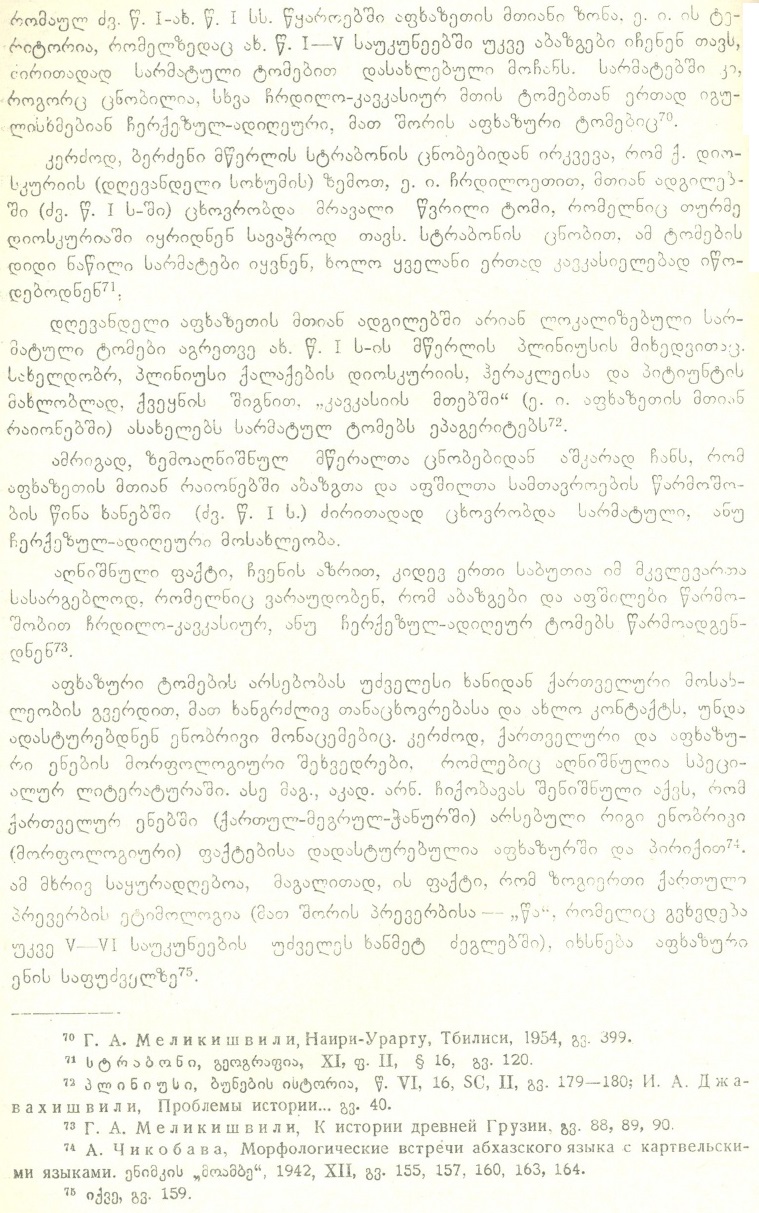 რომაულ ძვ. წ. I-ახ. წ. I სს. წყაროებში აფხაზეთის მთიანი ზონა. ე. ი. ის ტე-
რიტორია, რომელზედაც ახ. წ. I—V საუკუნეებში უკვე აბაზგები იჩენენ თავს,
ძირითადად სარმატული ტომებით დასახლებული მოჩანს. სარმატებში კი,
როგორც ცნობილია, სხვა ჩრდილო-კავკასიურ მთის ტომებთან ერთად იგუ-
ლისხმებიან ჩერქეზულ-ადიღეური, მათ შორის აფხაზური ტომებიც⁷⁰.
კერძოდ, ბერძენი მწერლის სტრაბონის ცნობებიდან ირკვევა, რომ ქ. დიო-
სკურიის (დღევანდელი სოხუმის) ზემოთ, ე. ი. ჩრდილოეთით, მთიან ადგილებ-
ში (ძვ. წ. I ს-ში) ცხოვრობდა მრავალი წვრილი ტომი, რომელნიც თურმე
დიოსკურიაში იყრიდნენ სავაჭროდ თავს. სტრაბონის ცნობით, ამ ტომების
დიდი ნაწილი სარმატები იყვნენ, ხოლო ყველანი ერთად კავკასიელებად იწო-
დებოდნენ⁷¹.
დღევანდელი აფხაზეთის მთიან ადგილებში არიან ლოკალიზებული სარ-
მატული ტომები აგრეთვე ახ. წ. I ს-ის მწერლის პლინიუსის მიხედვითაც.
სახელდობრ, პლინიუსი ქალაქების დიოსკურიის, ჰერაკლეისა და პიტიუნტის
მახლობლად, ქვეყნის შიგნით, „კავკასიის მთებში“ (ე. ი. აფხაზეთის მთიან
რაიონებში) ასახელებს სარმატულ ტომებს ეპაგერიტებს⁷².
ამრიგად, ზემოაღნიშნულ მწერალთა ცნობებიდან აშკარად ჩანს, რომ
აფხაზეთის მთიან რაიონებში აბაზგთა და აფშილთა სამთავროების წარმოშო-
ბის წინა ხანებში (ძვ. წ. I ს.) ძირითადად ცხოვრობდა სარმატული, ანუ
ჩერქეზულ-ადიღეური მოსახლეობა.
აღნიშნული ფაქტი, ჩვენის აზრით, კიდევ ერთი საბუთია იმ მკვლევართა
სასარგებლოდ, რომელნიც ვარაუდობენ, რომ აბაზგები და აფშილები წარმო-
შობით ჩრდილო-კავკასიურ, ანუ ჩერქეზულ-ადიღეურ ტომებს წარმოადგენ-
დნენ⁷³.
აფხაზური ტომების არსებობას უძველესი ხანიდან ქართველური მოსახ-
ლეობის გვერდით, მათ ხანგრძლივ თანაცხოვრებასა და ახლო კონტაქტს, უნდა
ადასტურებდნენ ენობრივი მონაცემებიც. კერძოდ, ქართველური და აფხაზუ-
რი ენების მორფოლოგიური შეხვედრები, რომლებიც აღნიშნულია სპეცი-
ალურ ლიტერატურაში. ასე მაგ., აკად. არნ. ჩიქობავას შენიშნული აქვს, რომ
ქართველურ ენებში (ქართულ-მეგრულ-ჭანურში) არსებული რიგი ენობრივი
(მორფოლოგიური) ფაქტებისა დადასტურებულია აფხაზურში და პირიქით⁷⁴.
ამ მხრივ საყურადღებოა, მაგალითად, ის ფაქტი, რომ ზოგიერთი ქართული
პრევერბის ეტიმოლოგია (მათ შორის პრევერბისა — „წა“, რომელიც გვხვდება
უკვე V—VI საუკუნეების უძველეს ხანმეტ ძეგლებში), იხსნება აფხაზური
ენის საფუძველზე⁷⁵.
⁷⁰ Г. А. Меликишвили, Наири-Урарту, Тбилиси, 1954, გვ. 399.
⁷¹ სტრაბონი, გეოგრაფია, XI, ფ. II, § 16, გვ. 120.
⁷² პლინიუსი, ბუნების ისტორია, წ. VI, 16, SC, II, გვ. 179—180; И. А. Джа-
вахишвили, Проблемы истории... გვ. 40.
⁷³ Г. А. Меликишвили, К истории древней Грузии. გვ. 88, 89, 90.
⁷⁴ А. Чикобава, Морфологические встречи абхазского языка с картвельски-
ми языками. ენიმკის „მოამბე“, 1942, XII, გვ. 155, 157, 160, 163, 164.
⁷⁵ იქვე, გვ. 159.